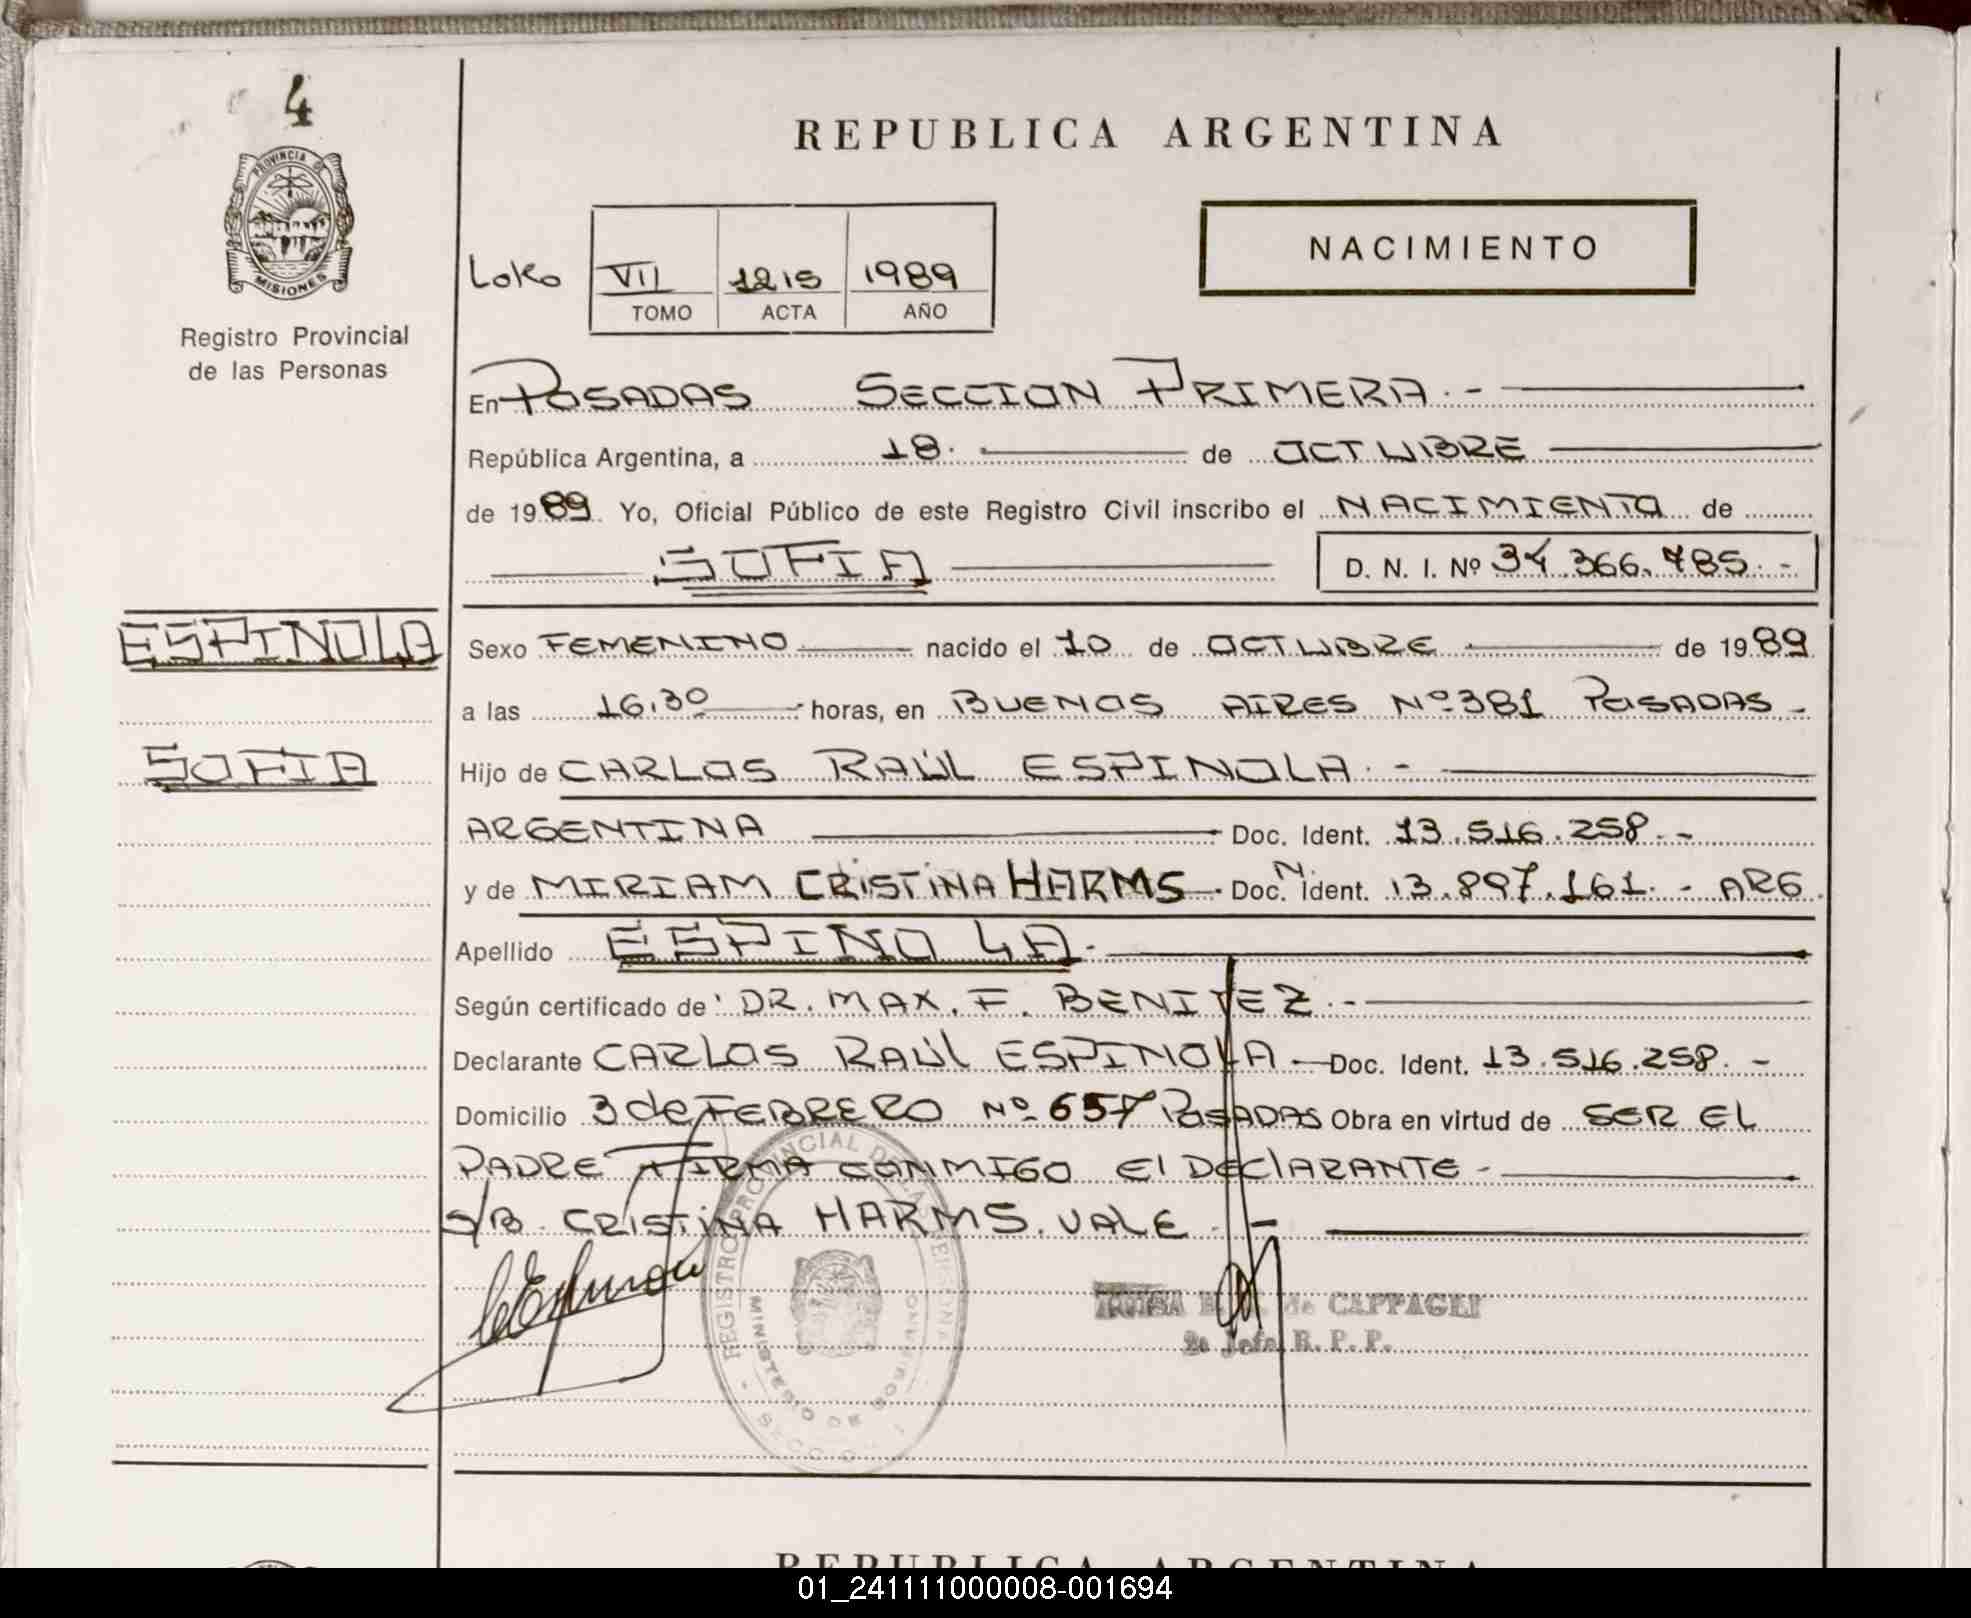 4
PROVINCIA DE
MISIONES
Registro Provincial
de las Personas
REPUBLICA ARGENTINA
NACIMIENTO
VII 1215 1989
TOMO ACTA AÑO
En POSADAS SECCION PRIMERA.-
República Argentina, a 18. de OCTUBRE
de 1989. Yo, Oficial Público de este Registro Civil inscribo el NACIMIENTO de
SOFIA D. N. I. Nº 34.366.785.-
ESPINOLA
SOFIA
Sexo FEMENINO nacido el 10 de OCTUBRE de 1989
a las 16,30 horas, en BUENOS AIRES Nº 381 POSADAS -
Hijo de CARLOS RAÚL ESPINOLA.-
ARGENTINA Doc. Ident. 13.516.258.-
y de MIRIAM CRISTINA HARMS - Doc. N. Ident. 13.897.161.- ARG.
Apellido ESPINOLA.
Según certificado de DR. MAX. F. BENITEZ.-
Declarante CARLOS RAÚL ESPINOLA - Doc. Ident. 13.516.258.-
Domicilio 3 de FEBRERO Nº 657 POSADAS Obra en virtud de SER EL
PADRE FIRMA CONMIGO El DEClARANTE -
S/B. CRISTINA HARMS. VALE. -
REGISTRO PROVINCIAL DE LAS PERSONAS
MINISTERIO DE GOBIERNO
de CAPPAGLI
2o Jefe R. P. P.
REPUBLICA ARGENTINA
01_241111000008-001694